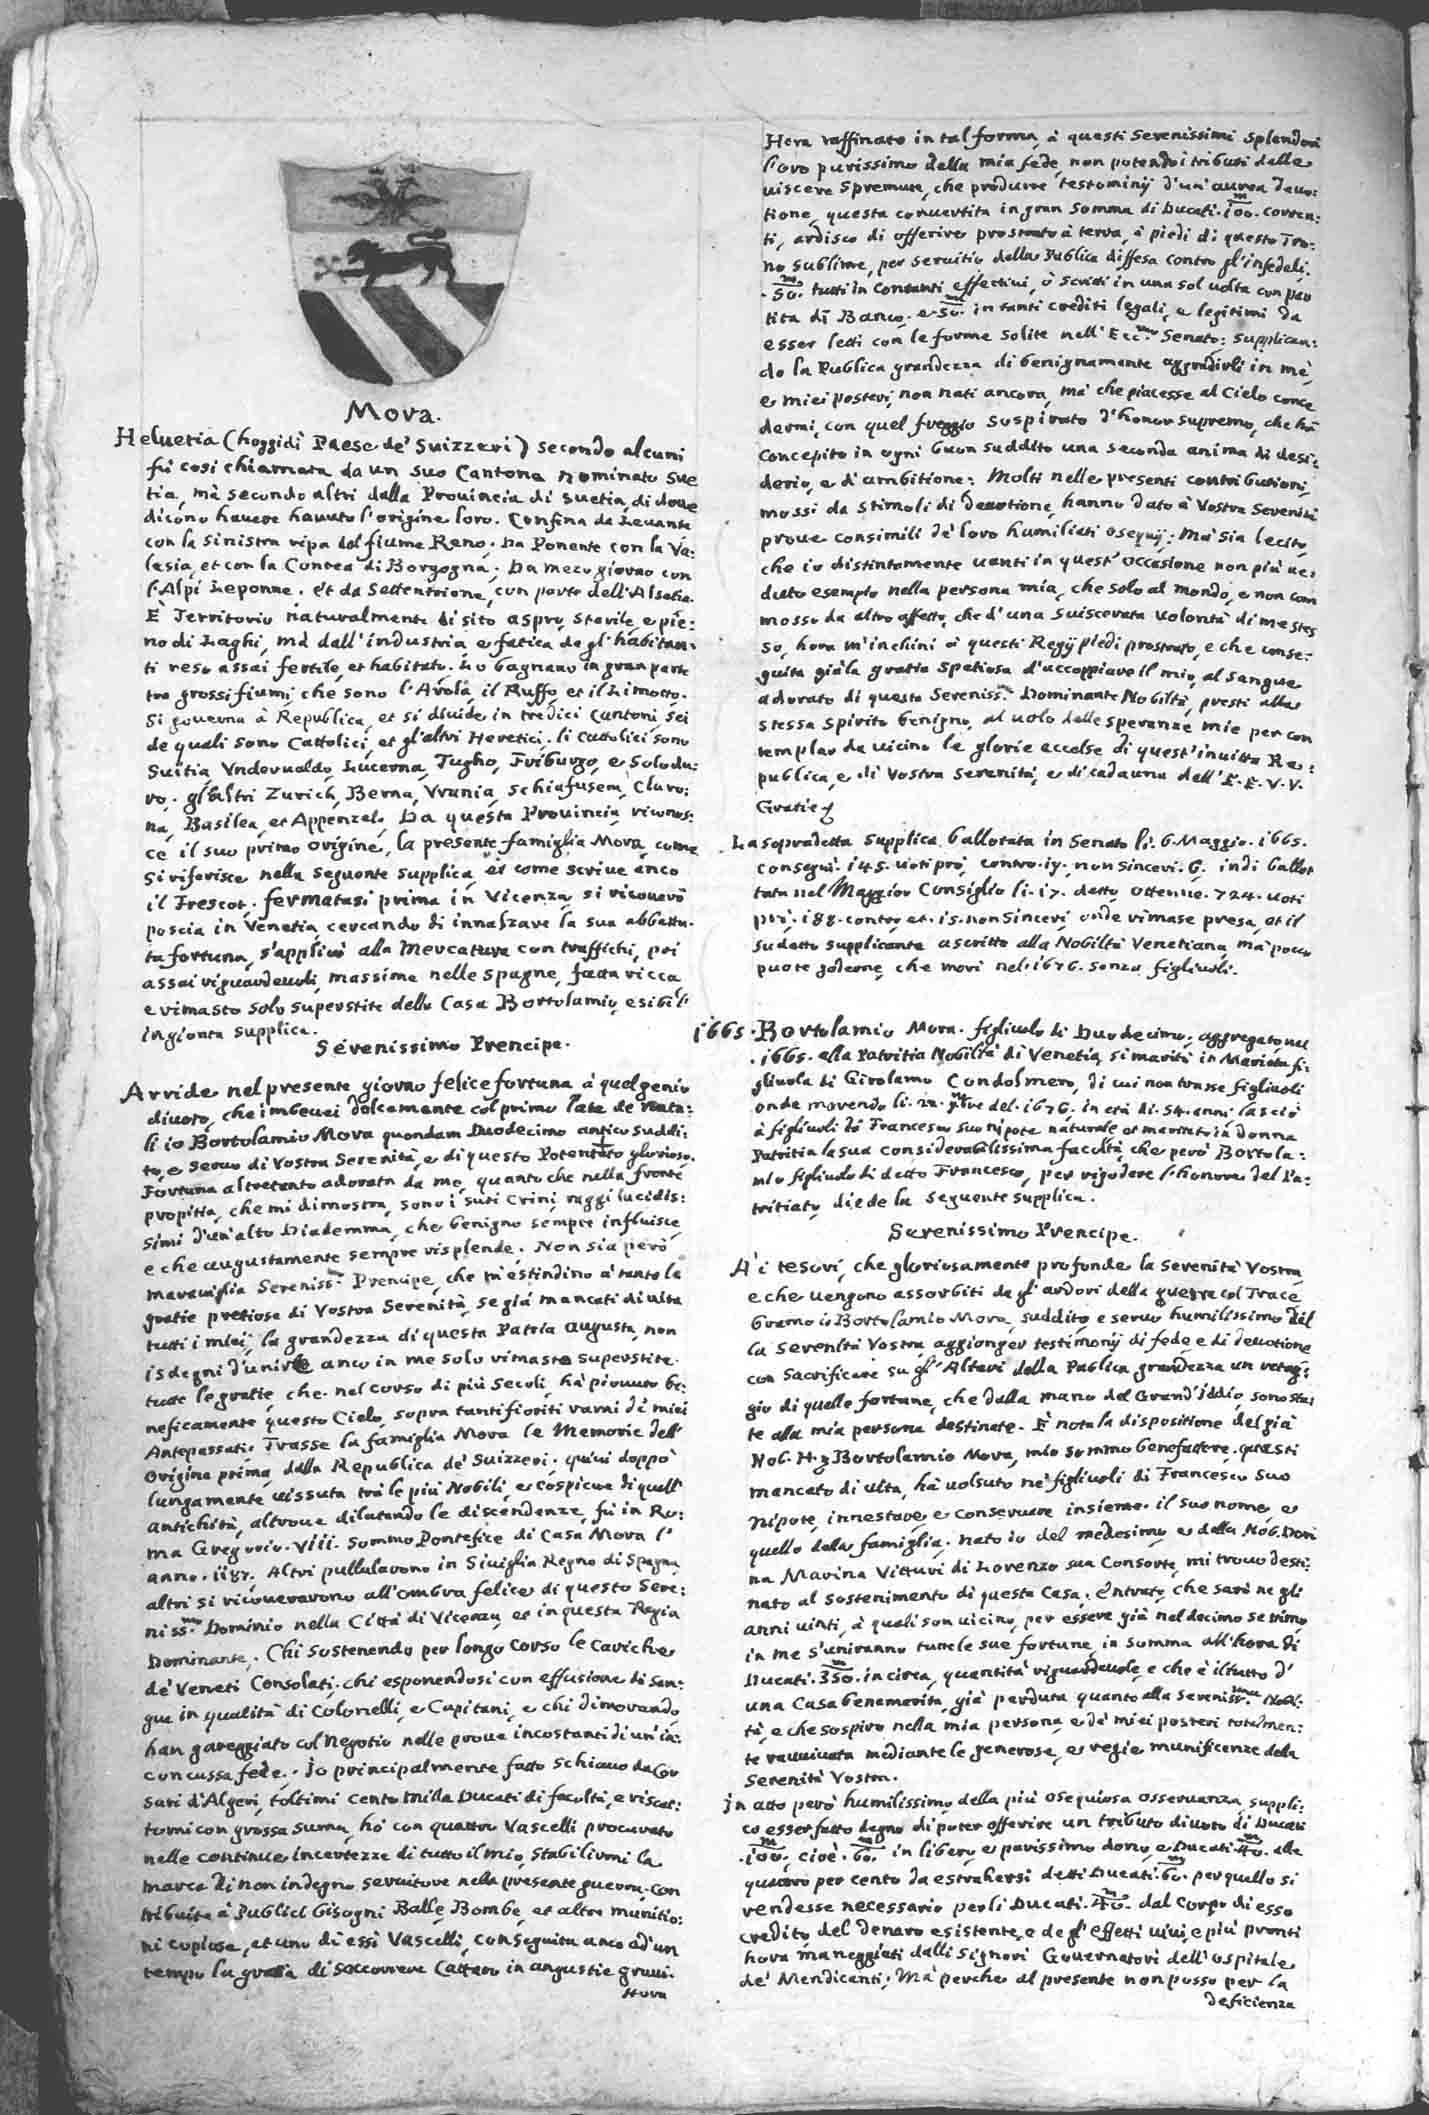 Mora.
Heluetia (hoggidì Paese de' Suizzeri) secondo alcuni
fù così chiamata da un suo Cantone nominato Sue
tia, mà secondo altri dalla Prouincia di Suetia, di doue
dicono hauere hauuto l'origine loro. Confina da Leuante
con la sinistra ripa del fiume Reno. Da Ponente con la Va:
lesia, et con la Contea di Borgogna. Da mezo giorno con
l'Alpi Leponne. et da Settentrione, con parte dell'Alsatia.
È Territorio naturalmente di sito aspro, sterile e pie:
no di Laghi, mà dall'industria e fatica de gl'habitan:
ti reso assai fertile, et habitato. Lo bagnano in gran parte
tre grossi fiumi, che sono l'Arola, il Ruffo, et il Limatto.
Si gouerna à Republica, et si diuide in tredici Cantoni, sei
de quali sono Cattolici, et gl'altri Heretici. li Cattolici sono
Suitia Vnderualdo, Lucerna, Tugho, Friburgo, e Solodu:
ro. gl'altri Zurich, Berna, Vrania, Schiafusem, Claro:
na, Basilea, et Appenzel. Da questa Prouincia riconos:
ce il suo primo origine, la presente famiglia Mora, come
si riferisce nella seguente supplica, et come scriue anco
il Frescot. fermatasi prima in Vicenza, si ricouerò
poscia in Venetia, cercando di innalzare la sua abbattu:
ta fortuna, s'applicò alla Mercatura con traffichi, poi
assai riguardeuoli, massime nelle Spagne, fatta ricca,
e rimasto solo superstite della Casa Bortolamio, esibì l'
ingionta supplica.
Serenissimo Prencipe.
Arride nel presente giorno felice fortuna à quel genio
diuoto, che imbeuei dolcemente col primo latte de nata:
li io Bortolamio Mora quondam Duodecimo antico suddi:
to, e seruo di Vostra Serenità, e di questo Potentato glorioso.
Fortuna altretanto adorata da me, quanto che nella fronte
propitia, che mi dimostra, sono i suoi Crini, raggi lucidis:
simi d'un'alto Diademma, che benigno sempre influisce,
e che augustamente sempre risplende. Non sia però
marauiglia Sereniss.mo Prencipe, che m'estindino à tanto le
gratie pretiose di Vostra Serenità, se già mancati di uita
tutti i miei, la grandezza di questa Patria augusta, non
isdegni d'unire anco in me solo rimasto superstite
tutte le gratie, che nel corso di più secoli, hà piouuto be:
neficamente questo Cielo, sopra tanti fioriti rami di miei
Antepassati. Trasse la famiglia Mora le Memorie dell'
origine prima, dalla Republica de' Suizzeri. quiui doppò
lungamente uissuta trà le più Nobili, e cospicue di quell'
antichità, altroue dilatando le discendenze, fù in Ro:
ma Gregorio. VIII. Sommo Pontefice di Casa Mora l'
anno. 1187. Altri pullularono in Siuiglia Regno di Spagna,
altri si ricouerarono all'ombra felice di questo Sere:
niss.mo Dominio nella Città di Vicenza, et in questa Regia
Dominante. Chi sostenendo per longo corso le cariche
de' Veneti Consolati, chi esponendosi con effusione di san:
gue in qualità di Colonelli, e Capitani, e chi dimorando,
han gareggiato col Negotio nelle proue incostanti di un'in:
concussa fede. Io principalmente fatto schiauo da Cor
sari d'Algeri, toltimi cento milla Ducati di facoltà, e riscat:
tomi con grossa suma, hò con quattro Vascelli procurato
nelle continue incertezze di tutto il mio, stabilirmi la
marca di non indegno seruitore nella presente guerra, con
tribuite à Publici bisogni Balle, Bombe, et altre munitio:
ni copiose, et uno di essi Vascelli, conseguita anco ad'un
tempo la gratia di soccorrere Cattaro in angustie graui.
Hora
Hora raffinato in tal forma, à questi Serenissimi splendori
l'oro purissimo della mia fede, non potendo i tributi dalle
uiscere spremute, che produrre testominij d'un'aurea deuo:
tione, questa conuertita in gran somma di Ducati. 100.m corren:
ti, ardisco di offerire prostrato à terra, à piedi di questo Tro:
no sublime, per seruitio della Publica diffesa contro gl'infedeli,
.50.m tutti in contanti effettiui, ò scritti in una sol uolta con par
tita di Banco. e 50.m in tanti crediti legali, e legitimi da
esser letti con le forme solite nell'Ecc.mo Senato: supplican:
do la Publica grandezza di benignamente aggradirli in mè,
e miei posteri, non nati ancora, mà che piacesse al Cielo conce
dermi, con quel freggio sospirato d'honor supremo, che hà
concepito in ogni buon suddito una seconda anima di desi:
derio, e d'ambitione: Molti nelle presenti contributioni,
mossi da stimoli di deuotione, hanno dato à Vostra Serenità
proue consimili de' loro humiliati osequij: Mà sia lecito,
che io distintamente uanti in quest'occasione non più ue:
duto esempio nella persona mia, che solo al mondo, e non com
mosso da altro affetto, che d'una suiscerata volontà di me stes
so, hora m'inchini à questi Regij piedi prostrato, e che conse:
guita già la gratia spetiosa d'accoppiare il mio, al sangue
adorato di questa Sereniss.ma Dominante Nobiltà, presti allo
stesso spirito benigno, al uolo delle speranze mie per con
templar da uicino le glorie eccelse di quest'inuitta Re:
publica, e di Vostra Serenità, e di cadauna dell'E. E. V. V.
Gratie
La sopradetta supplica ballotata in Senato li. 6. Maggio. 1665.
conseguì. 145. uoti prò, contro. 19. non sinceri. 6. indi ballot
tata nel Maggior Consiglio li. 17. detto ottenne. 724. uoti
prò. 188. contro et. 15. non sinceri, onde rimase presa, et il
sudetto supplicante ascritto alla Nobiltà Venetiana, mà poco
puote goderne, che morì nel. 1676. senza figliuoli.
1665. Bortolamio Mora. figliuolo di Duodecimo; aggregato nel
.1665. alla Patritia Nobiltà di Venetia, si maritò in Marietta fi:
gliuola di Girolamo Condolmero, di cui non trasse figliuoli
onde morendo li. 22. 9mbre del. 1676. in età di. 54. anni lasciò
à figliuoli di Francesco suo nipote naturale et maritato in donna
Patritia la sua considerabilissima facoltà, che però Bortola:
mio figliuolo di detto Francesco, per rigodere l'honore del Pa:
tritiato, diede la seguente supplica.
Serenissimo Prencipe.
A'i tesori, che gloriosamente profonde la Serenità Vostra,
e che uengono assorbiti da gl'ardori della guerra col Trace
bramo io Bortolamio Mora, suddito, e seruo humilissimo del
la Serenità Vostra, aggionger testimonij di fede, e di deuotione
con sacrificare su gl'Altari della Publica grandezza un retag:
gio di quelle fortune, che dalla mano del Grand'Iddio, sono sta:
te alla mia persona destinate. È nota la dispositione del già
Nob. H. Bortolamio Mora, mio sommo benefattore. questi
mancato di uita, hà uolsuto ne' figliuoli di Francesco suo
Nipote, innestare, e conseruare insieme. il suo nome, e
quello della famiglia. nato io del medesimo, e della Nob. Don
na Marina Vitturi di Lorenzo sua Consorte, mi trouo desti:
nato al sostenimento di questa Casa. entrato, che sarò ne gli
anni uinti, à quali son uicino, per essere già nel decimo settimo
in me s'uniranno tutte le sue fortune, in somma all'hora di
Ducati. 350.m in circa, quantità riguardeuole, e che è il tutto d'
una Casa benemerita, già perduta quanto alla Sereniss.ma Nobil:
tà, e che sospiro nella mia persona, e de' miei posteri totalmen:
te rauuiuata mediante le generose, e regie munificenze della
Serenità Vostra.
In atto però humilissimo della più osequiosa osseruanza, suppli:
co esser fatto degno di poter offerire un tributo diuoto di Ducati
.100.m cioè. 60.m in libero, e purissimo dono, e Ducati. 40.m alle
quatro per cento da estrahersi detti Ducati. 60.m per quello si
rendesse necessario per li Ducati. 40.m dal corpo di esso
credito, del denaro esistente, e de gl'effetti uiui, e più pronti
hora maneggiati dalli Signori Gouernatori dell'ospitale
de' Mendicanti; Mà perche al presente non posso per la
deficienza